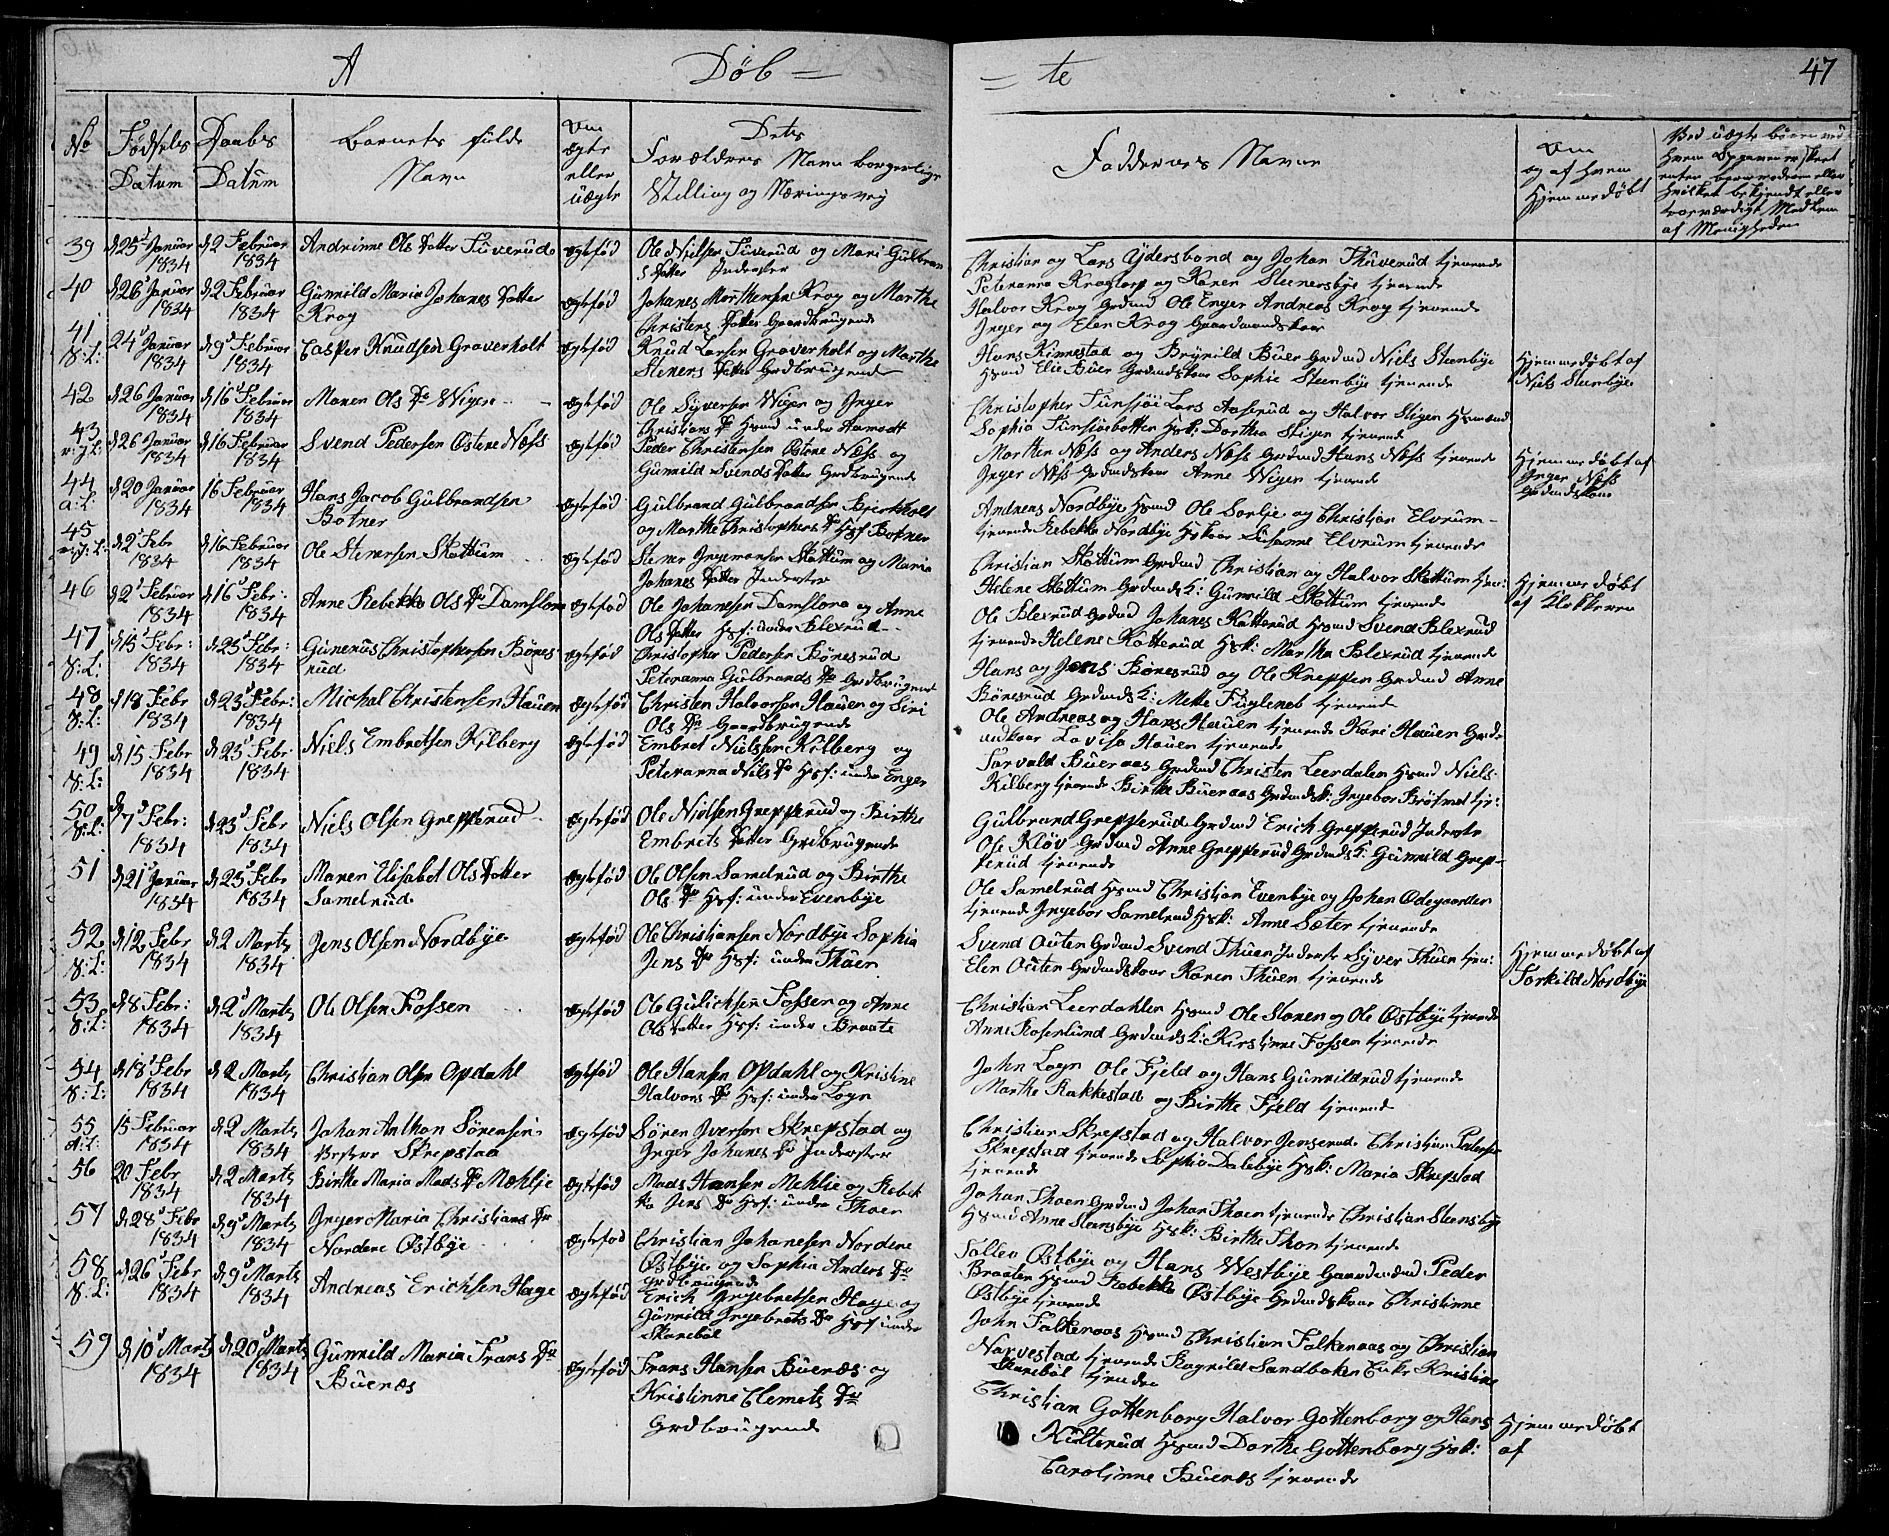 A Døb = = te 47
No
Fødsels Datum
Daabs Datum
Barnets fulde Navn
Om ægte eller uægte
Dets Forældres Navn borgerlige Stilling og Næringsvej
Faddernes Navne
Om og af hvem Hjemmedøbt
39 d 25 Januar 1834 d 2 Februar 1834 Andrinne Ols Datter Tuverud ægtefød Ole Nielsen Tuverud og Mari Gulbran
s Datter Inderster
Christian og Lars Ydersbond og Johan Thuverud tjenende
Peteranna Krogtorp og Karen Steenersbye tjenende
40 d 26 Januar 1834 d 2 Februar 1834 Gunnild Maria Johanes Datter
Krog ægtefød Johanes Morthensen Krog og Marthe
Christens Datter Gaardbrugende
Halvor Krog Grdmd Ole Enger Andreas Krog tjenende
Inger og Elen Krog Gaardmandskoner
41 N:L: 24 Januar 1834 d 9 Februar 1834 Casper Knudsen Graverholt ægtefød Knud Larsen Graverholt og Marthe
Steners Datter Grdbrugende
Hans Kinnestad og Brynild Buer Grdmd Niels Steenbye
Hsmd Elie Buer Grdmdskone Sophie Steenbye tjenende
Hjemmedøbt af
Niels Steenbye
42 d 26 Januar 1834 d 16 Februar 1834 Maren Ols Dr Wigen ægtefød Ole Syversen Wigen og Inger
Christians Dr Hsmd under Aamodt
Christopher Tunsiøi Lars Aaserud og Halvor Stigen Hsmænd
Sophia Tunsiøebotten Hsk: Dorthea Stigen tjenende
43 d 26 Januar 1834 d 16 Februar 1834 Svend Pedersen Østene Næss ægtefød Peder Christensen Østene Næss og
Gunnild Svends Datter Grdbrugende
Morthen Næss og Anders Næss Grdmd Hans Næss tjenende
Inger Næss Grdmdskone Anne Wigen tjenende
Hjemmedøbt af
Inger Næss
Grdmdskone
44 d 20 Januar 1834 16 Februar 1834 Hans Jacob Gulbrandsen
Botner ægtefød Gulbrand Gulbrandsen Bjerkholt
og Marthe Christophers Dr Hsf Botner
Andreas Nordbye Hsmd Ole Sorlie og Christian Elvrum
tjenende Rebekka Nordbye Hskone Susanne Elvrum tjenende
45 d 2 Febr 1834 d 16 Februar 1834 Ole Stenersen Skottum ægtefød Stener Ingemansen Skottum og Maria
Johanes Datter Inderster
Christian Skottum Grdmd Christian og Halvor Skottum tjen:
Helene Skottum Grdmdsk: Gunnild Skottum tjenende
Hjemmedøbt
af Klokkeren
46 d 2 Februar 1834 d 16 Febr: 1834 Anne Rebekka Ols Dr Damslora ægtefød Ole Johanesen Damslora og Anne
Ols Datter Hsf: under Blexrud
Ole Blexrud Grdmd Johanes Katterud Hsmd Svend Blexrud
tjenende Helene Katterud Hsk: Marthe Blexrud tjenende
47 N:L: d 15 Febr: 1834 d 23 Febr: 1834 Gunerius Christophersen Bønes
rud ægtefød Christopher Pedersen Bønesrud
Peteranna Gulbrands Dr Grdbrugende
Hans og Jens Bønesrud og Ole Knepper Grdmd Anne
Bønesrud Grdmdsk: Mette Fugleneb tjenende
48 N:L: d 18 Febr 1834 d 23 Febr: 1834 Michal Christensen Hauen ægtefød Christen Halvorsen Hauen og Siri
Ols Dr Gaardbrugende
Ole Andreas og Hans Hauen tjenende Kari Hauen Grdm
andkone Lovisa Hauen tjenende
49 N:L: d 15 Febr 1834 d 23 Febr 1834 Niels Embretsen Kilberg ægtefød Embret Nielsen Kilberg og
Peteranna Niels Dr Hsf: under Enger
Torvald Bueraas Grdmd Christen Leerdalen Hsmd Niels
Kilberg tjenende Birthe Bueraas Grdmdsk: Ingebor Brøsmet tje:
50 N:L: d 7 Febr: 1834 d 23 Febr 1834 Niels Olsen Grepperud ægtefød Ole Nielsen Grepperud og Birthe
Embrets Datter Grdbrugende
Gulbrand Grepperud Grdmd Erich Grepperud Inderste
Ole Kløv Grdmd Anne Grepperud Grdmdsk: Gunnild Grep-
perud tjenende
51 d 21 Januar 1834 d 23 Febr 1834 Maren Elisabet Ols Datter
Samelrud ægtefød Ole Olsen Samelrud og Birthe
Ols Dr Hsf: under Evenbye
Ole Samelrud Hsmd Christian Evenbye og Johan Ødegaarden
tjenende Ingebor Samelrud Hsk: Anne Sæter tjenende
52 N:L: d 12 Febr 1834 d 2 Marts 1834 Jens Olsen Nordbye ægtefød Ole Christiansen Nordbye Sophia
Jens Dr Hsf: under Thuen
Svend Outen Grdmd Svend Thuen Inderste Syver Thuen tjen:
Elen Outen Grdmdskone Karen Thuen tjenende
Hjemmedøbt af
Torkild Nordbye
53 N:L: d 8 Febr: 1834 d 2 Marts 1834 Ole Olsen Fossen ægtefød Ole Gulichsen Fossen og Anne
Ols Datter Hsf: under Braate
Christian Leerdahlen Hsmd Ole Storen og Ole Østbye tjenende
Anne Rosenlund Grdmdsk: Kirstinne Fossen tjenende
54 N:L: d 18 Febr 1834 d 2 Marts 1834 Christian Olsen Opdahl ægtefød Ole Hansen Opdahl og Kristine
Halvors Dr Hsf: under Logn
John Logn Ole Fjeld og Hans Gunnildrud tjenende
Marthe Rakkestad og Birthe Fjeld tjenende
55 15 Februar 1834 d 2 Marts 1834 Johan Anthon Sørensen
Skrepstad ægtefød Søren Iversen Skrepstad og
Inger Johanes Dr Inderster
Christian Skrepstad og Halvor Jenserud Christian Pedersen
Skrepstad tjenende Sophia Dalebye Hsk: Maria Skrepstad
tjenende
56 20 Febr 1834 d 2 Marts 1834 Birthe Maria Mads Dr Mæhlie ægtefød Mads Hansen Mehlie og Rebek
ka Jens Dr Hsf: under Thoen
Johan Thoen Grdmd Johan Thoen tjenende Christian Steensbye
Hsmd Anne Steensbye Hsk: Birthe Thon tjenende
57 d 28 Febr 1834 d 9 Marts 1834 Inger Maria Christians Dr
Nordene Østbye ægtefød Christian Johanesen Nordene
Østbye og Sophia Anders Dr
Grdbrugende
Tollev Østbye og Hans Westbye Gaardmænd Peder
Braaten Hsmd Rebekka Østbye Grdmdskone Christinne
Østbye tjenende
58 N:L: d 26 Febr 1834 d 9 Marts 1834 Andreas Erichsen Hage ægtefød Erich Ingebretsen Hage og
Gunnild Ingebrets Dr Hsf under
Skaribøl
John Falkenaas Hsmd Christian Falkenaas og Christian
Narvestad tjenende Ragnild Sandbaken Enke Kristine
Skaribøl tjenende
59 d 10 Marts 1834 d 20 Marts 1834 Gunnild Maria Frans Dr
Buenæs ægtefød Frans Hansen Buenæs og
Kristinne Clemets Dr
Grdbrugende
Christian Gottenborg Halvor Gottenborg og Hans
Kulterud Hsmd Dorthe Gottenborg Hsk:
Carolinne Buenæs tjenende
Hjemmedøbt
af